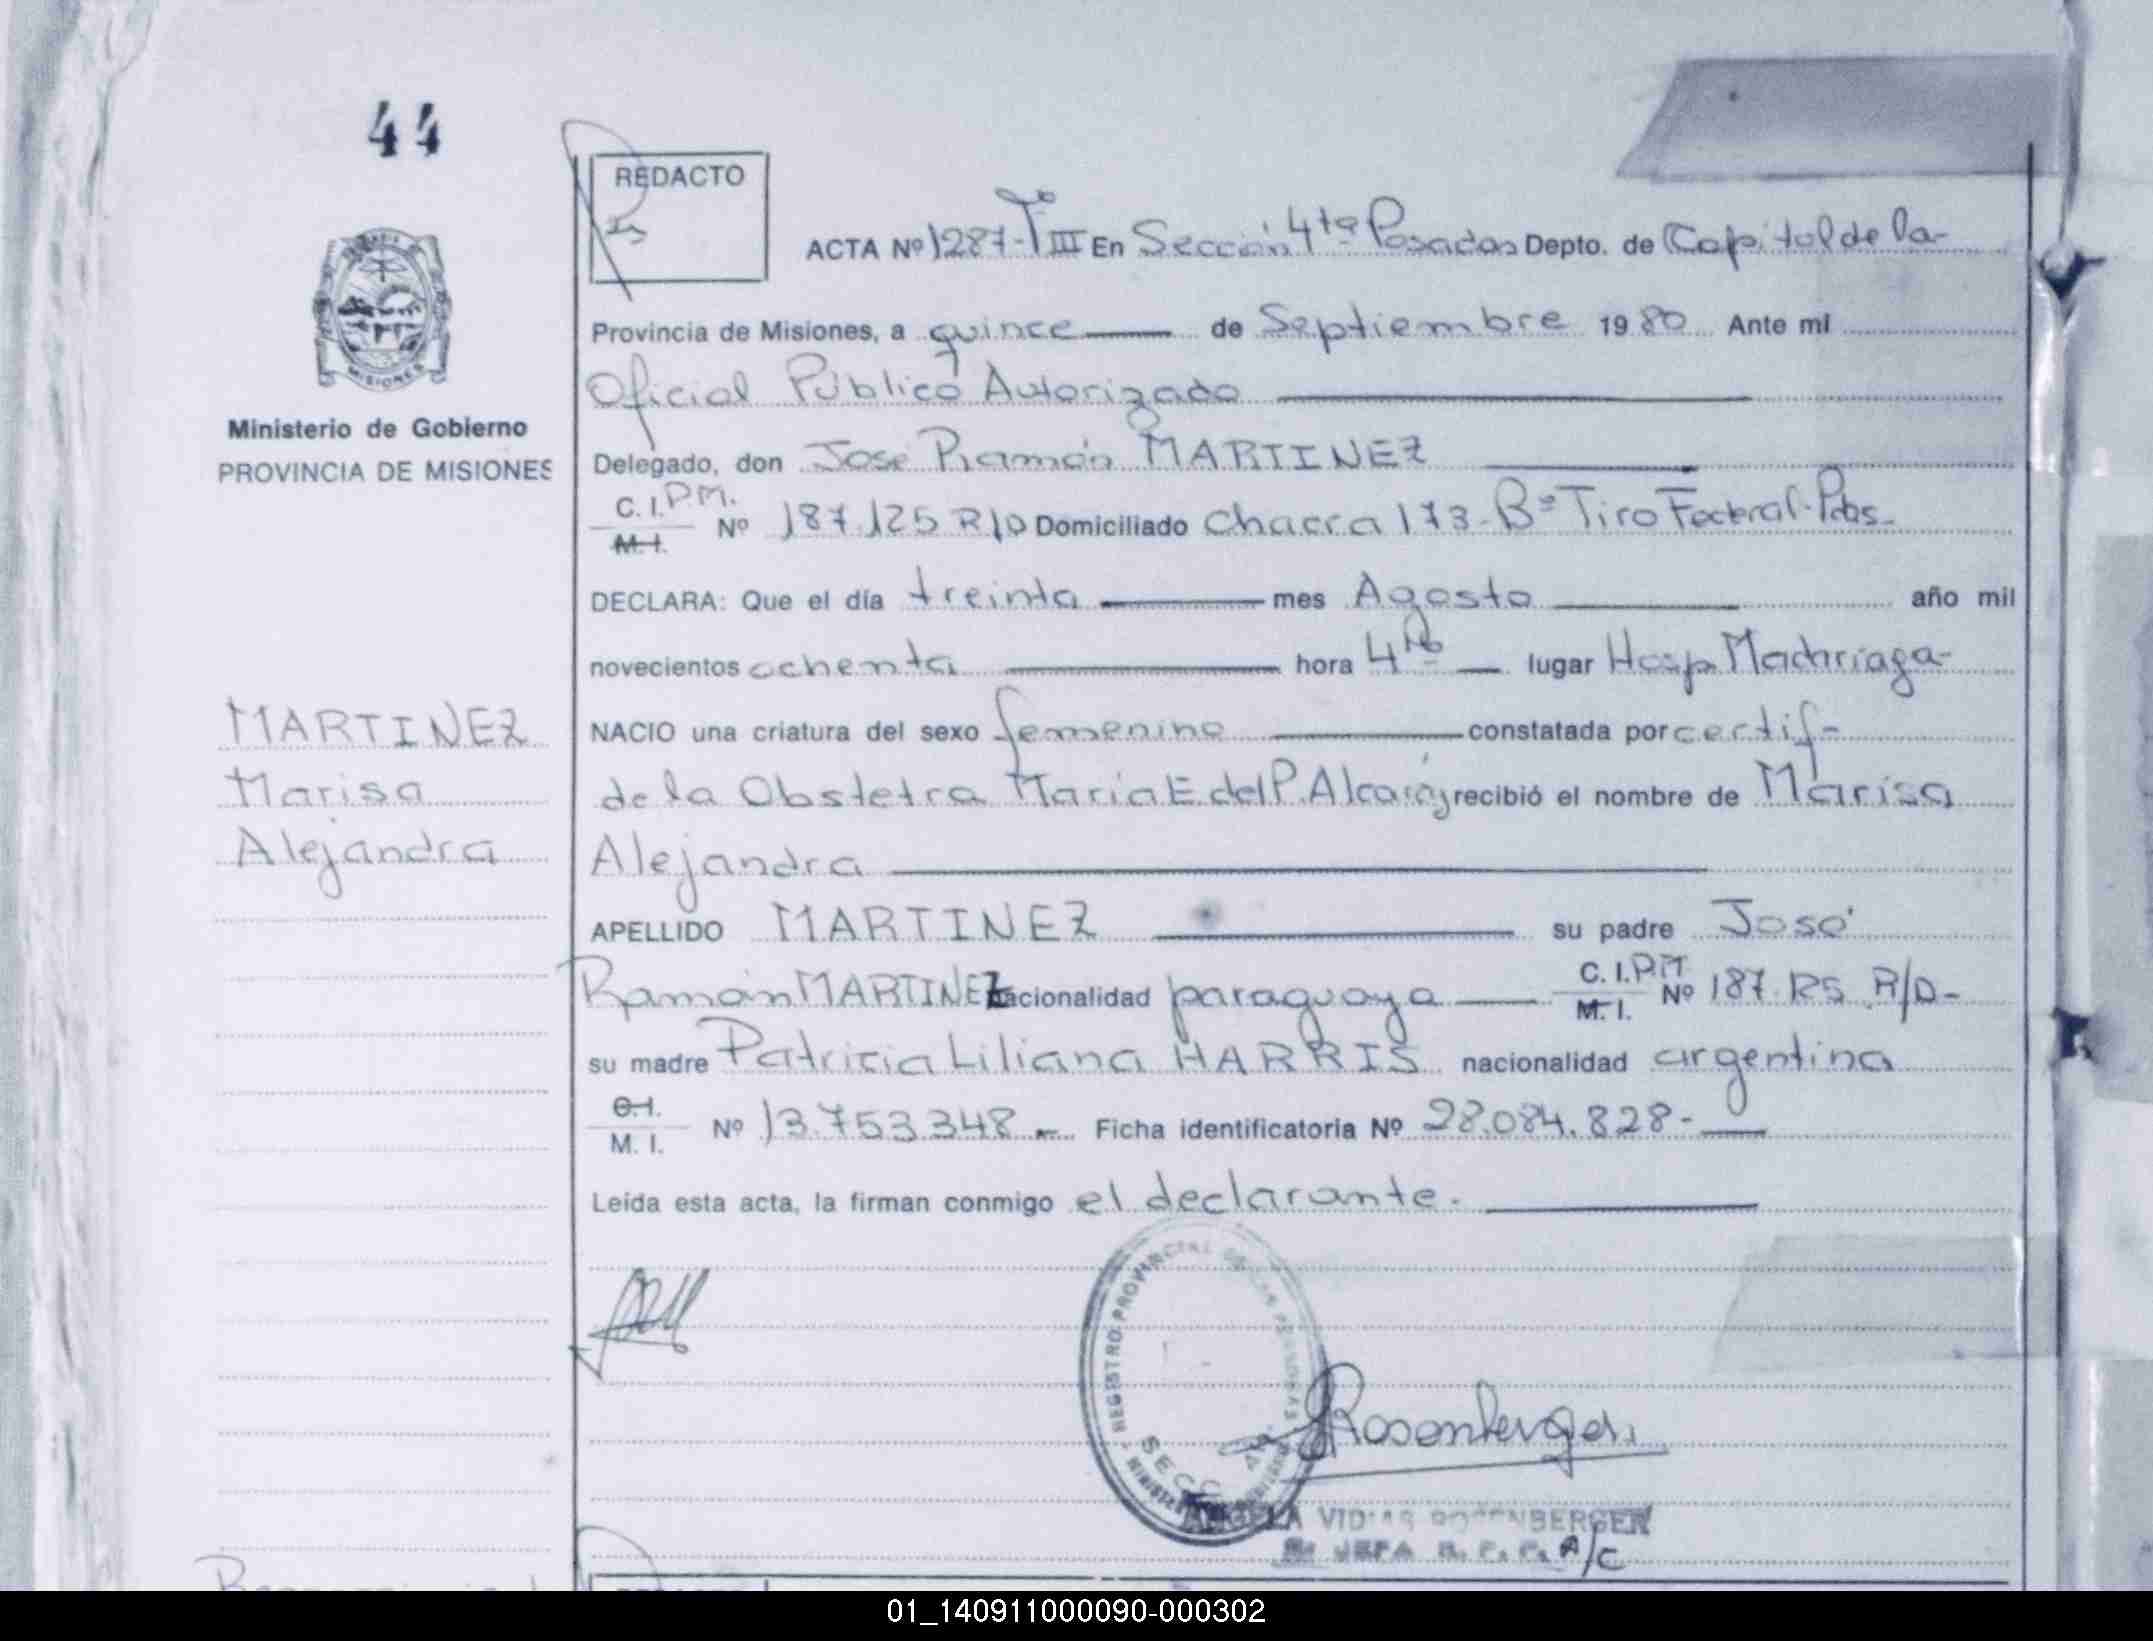 44
REDACTO
ACTA Nº 1287-Tº III En Sección 4ta Posadas Depto. de Capital de la-
Provincia de Misiones, a quince de Septiembre 1980 Ante mi
Oficial Público Autorizado
Ministerio de Gobierno
PROVINCIA DE MISIONES
Delegado, don José Ramón MARTINEZ
C. I. P.M.
M. I.
Nº 187.125 R/D Domiciliado Chacra 173-Bº Tiro Federal-Pdas-
DECLARA: Que el día treinta mes Agosto año mil
novecientos ochenta hora 4 lugar Hosp. Madariaga-
MARTINEZ
Marisa
Alejandra
NACIO una criatura del sexo femenino constatada por certif-
de la Obstetra María E. del P. Alcaráz recibió el nombre de Marisa
Alejandra
APELLIDO MARTINEZ su padre José
Ramón MARTINEZ nacionalidad paraguaya C. I. P.M. M. I. Nº 187.125 R/D-
su madre Patricia Liliana HARRIS nacionalidad argentina
C. I.
M. I.
Nº 13.753.348.- Ficha identificatoria Nº 28.084.828-
Leída esta acta, la firman conmigo el declarante.
REGISTRO PROVINCIAL DE LAS PERSONAS
SECC. 4ta
Rosenberger
ANGELA VIDMAR ROSENBERGER
JEFA R. P. P. A/C
01_140911000090-000302